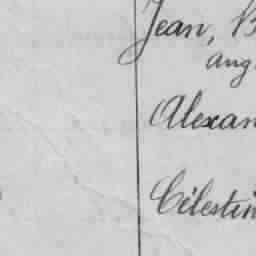 Jean, B
aug
Alexan
Célestin